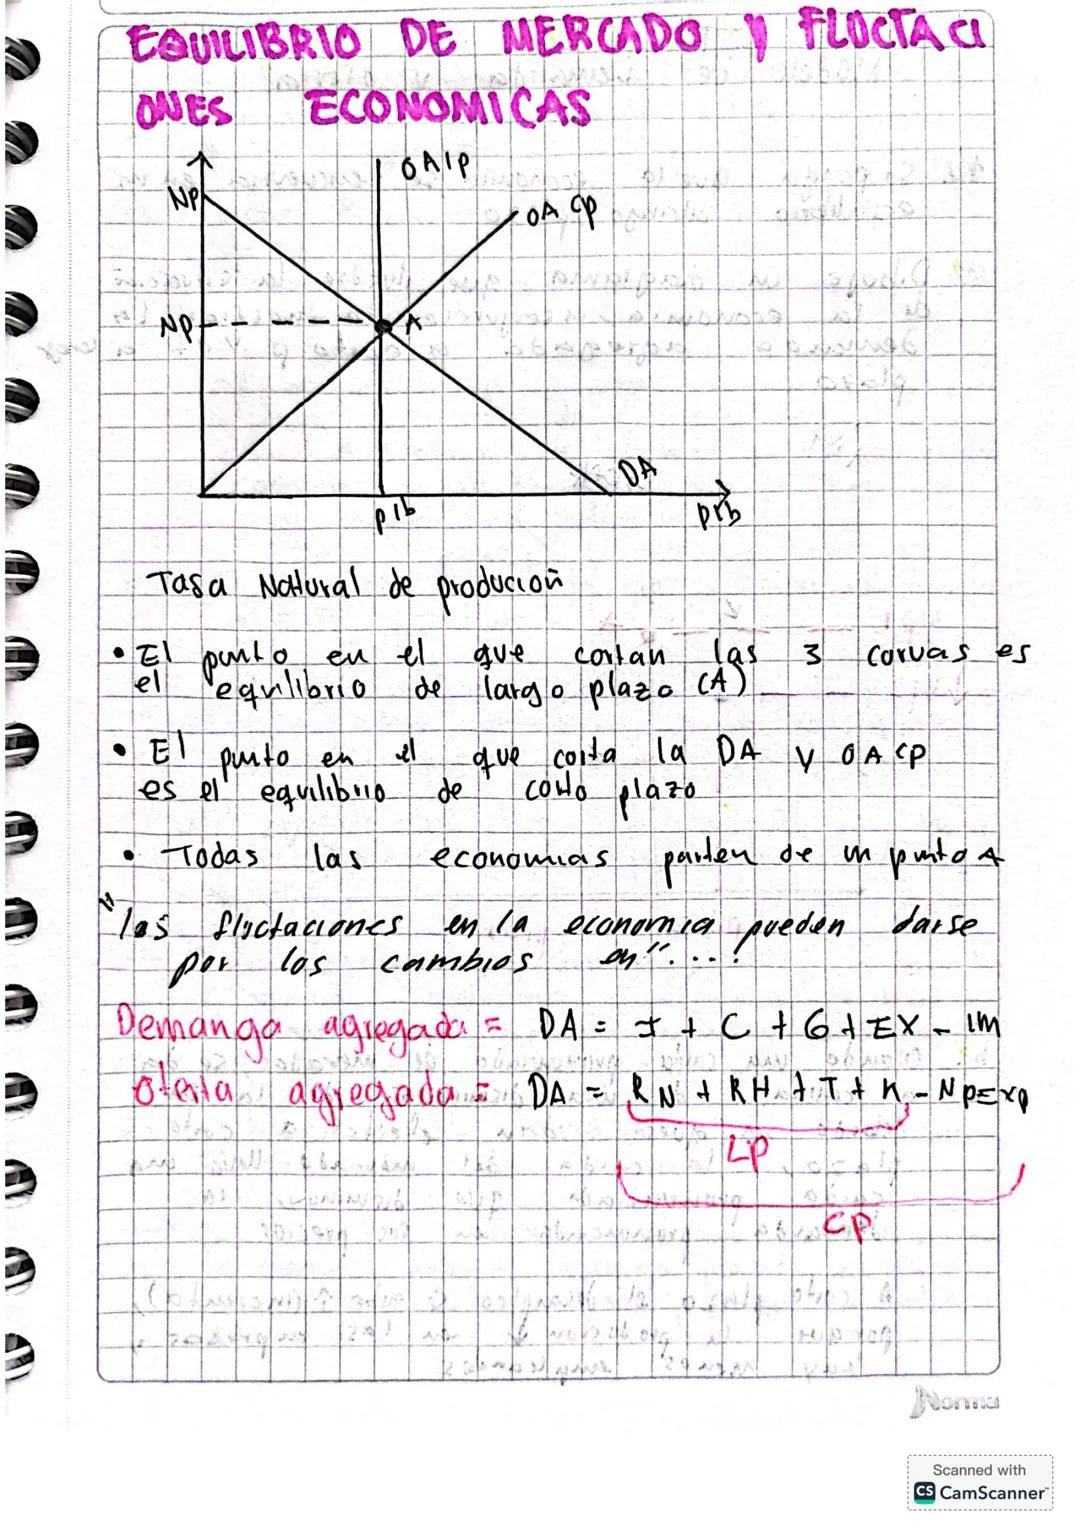 EQUILIBRIO DE MERCADO Y FLUCTACI
ONES ECONOMICAS
OAlp
NP
OA cp
NP
A
DA
pib
pib
Tasa Natural de producion
• El punto en el que cortan las 3 curvas es
el equilibrio de largo plazo (A)
• El punto en el que corta la DA y OA cp
es el equilibrio de corto plazo
• Todas las economias parten de un punto A
"las fluctaciones en la economia pueden darse
por los cambios en"...!
Demanga agregada = DA = I + C + G + EX - IM
Oferta agregada = DA = RN + RH + T + K - NpExp
Lp
Cp
Norma
Scanned with
CS CamScanner